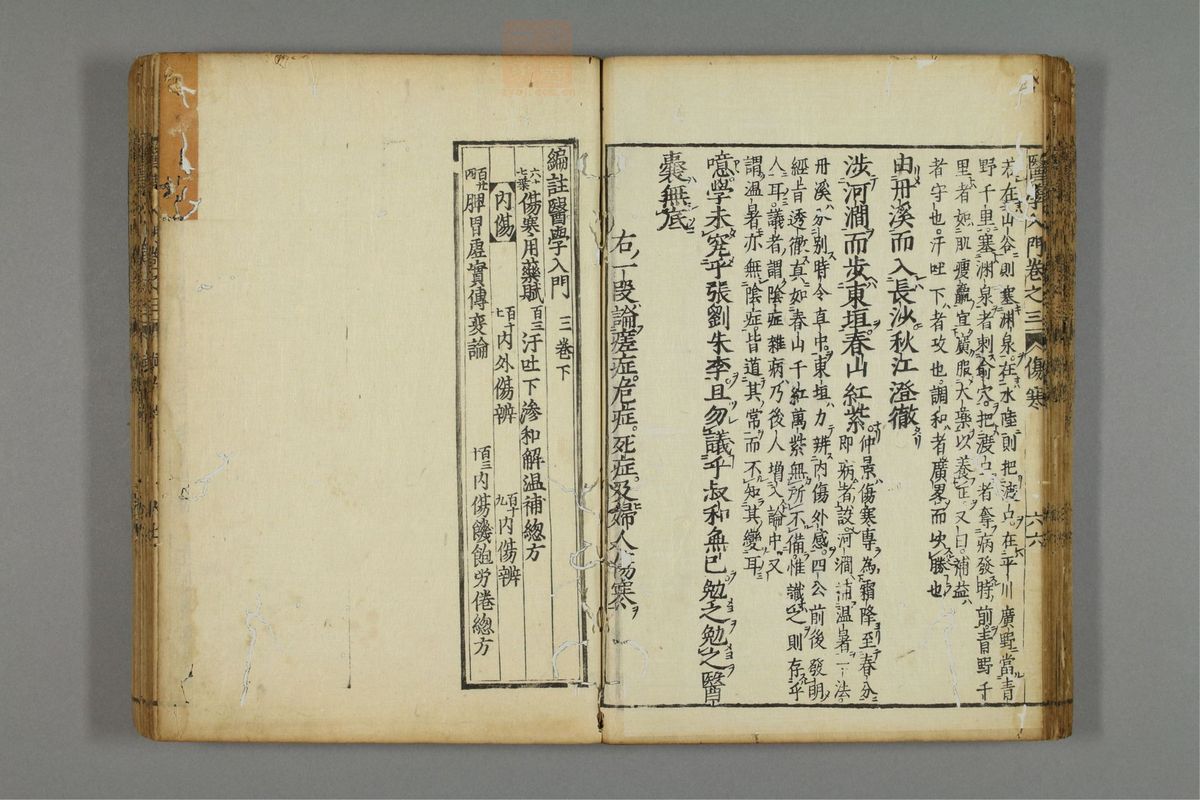 醫學入門卷之三 傷寒 六六
若在山谷則塞淵泉在水陸則把渡口在平川廣野當青
野千里塞淵泉者刺俞穴把渡口者奪病發時前青野千
里者如肌瘦羸宜廣服大藥以養正又曰補益
者守也汗吐下者攻也調和者廣畧而决勝也
由丹溪而入長沙秋江澄徹
涉河澗而步東垣春山紅紫
仲景傷寒專為霜降至春分
即病者設河澗補溫暑一法
丹溪分別時令直中東垣力辨内傷外感四公前後發明
經旨透徹真如春山千紅萬紫無所不備惟識之則存乎
人耳議者謂陰症雜病乃後人增入論中又
謂溫暑亦無陰症皆道其常而不知其變耳
噫學未究乎張劉朱李且勿議乎叔和無已勉之勉之醫
囊無底
右一段論瘥症危症死症及婦人傷寒
編註醫學入門 三卷下
六十七葉 傷寒用藥賦
百三 汗吐下滲和解温補總方
内傷
百十七 内外傷辨
百十九 内傷辨
百廿四 脾胃虛實傳變論
百三十 内傷饑飽勞倦總方